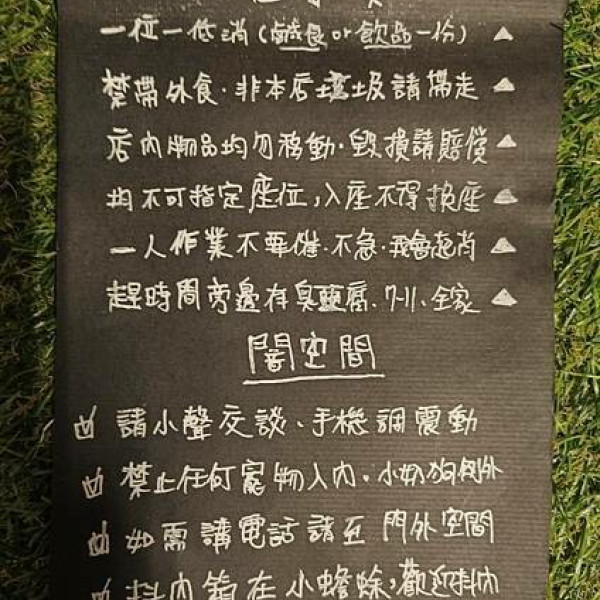 一位一低消(鹹食or飲品一份)▲
禁帶外食.非本店垃圾請帶走▲
店內物品均勿移動.毀損請賠償▲
均不可指定座位,入座不得換座▲
一人作業不要催.不急.我會起肖▲
趕時間旁邊有臭豆腐、7-11、全家▲
闇空間
請小聲交談、手機調震動
禁止任何寵物入內.小奶狗例外
如需講電話請至門外空間
抖內箱在小蟾蜍,歡迎抖內